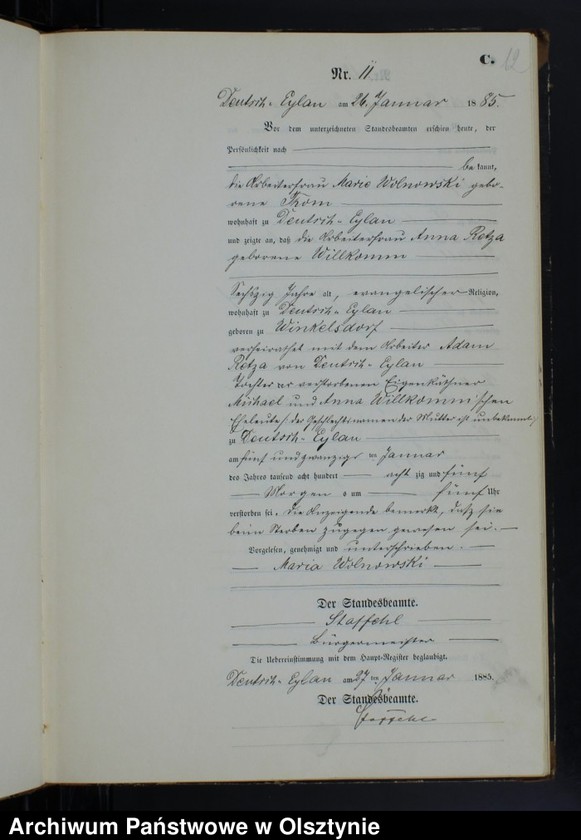 C. 12
Nr. 11
Deutsch-Eylau am 26. Januar 1885.
Vor dem unterzeichneten Standesbeamten erschien heute, der
Persönlichkeit nach
bekannt,
die Arbeiterfrau Marie Wolnowski gebo-
rene Thom
wohnhaft zu Deutsch-Eylau
und zeigte an, daß die Arbeiterfrau Anna Retza
geborene Willkomm
Sechszig Jahre alt, evangelischer Religion,
wohnhaft zu Deutsch-Eylau
geboren zu Winkelsdorf
verheirathet mit dem Arbeiter Adam
Retza von Deutsch-Eylau
Tochter der verstorbenen Eigenkäthner
Michael und Anna Willkomm'schen
Eheleute/ der Geschlechtsnamen der Mutter ist unbekannt/
zu Deutsch-Eylau
am fünf und zwanzigs ten Januar
des Jahres tausend acht hundert acht zig und fünf
Morgens um fünf Uhr
verstorben sei. Die Anzeigende bemerkt, daß sie
beim Sterben zugegen gewesen sei.
Vorgelesen, genehmigt und unterschrieben.
Maria Wolnowski
Der Standesbeamte.
Staffehl
Bürgermeister
Die Uebereinstimmung mit dem Haupt-Register beglaubigt.
Deutsch-Eylau am 27 ten Januar 1885.
Der Standesbeamte.
Staffehl
Archiwum Państwowe w Olsztynie